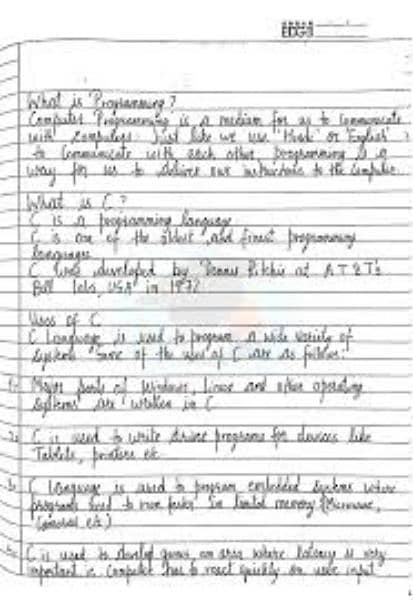 What is Programming?
Computer Programming is a medium for us to communicate
with computers. Just like we use "Hindi" or "English"
to communicate with each other, programming is a
way for us to deliver our instructions to the computer.
What is C?
C is a programming language
C is one of the oldest and finest programming
languages
C was developed by Dennis Ritchie at AT&T's
Bell labs, USA in 1972
Uses of C
C Language is used to program a wide variety of
systems. Some of the uses of C are as follows:
1. Major parts of Windows, Linux and other operating
systems are written in C
2. C is used to write driver programs for devices like
Tablets, printers etc.
3. C language is used to program embedded systems where
programs need to run faster in limited memory (Microwave,
Cameras etc)
4. C is used to develop games, an area where latency is very
important i.e. Computer has to react quickly on user input.